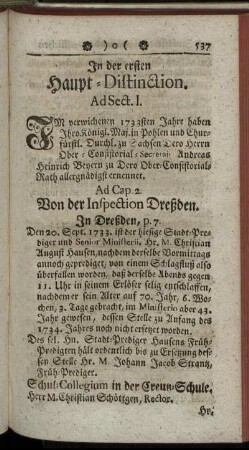 ) o (
137
In der ersten
Haupt-Distinction.
Ad Sect. I.
IM verwichenen 1733sten Jahr haben
Ihro Königl. Maj. in Pohlen und Chur-
fürstl. Durchl. zu Sachsen Dero Herrn
Ober-Consistorial-Secretair Andreas
Heinrich Beyern zu Dero Ober-Consistorial-
Rath allergnädigst ernennet.
Ad Cap. 2.
Von der Inspection Dreßden.
In Dreßden, p. 7.
Den 20. Sept. 1733. ist der hiesige Stadt-Pre-
diger und Senior Ministerii, Hr. M. Christian
August Hausen, nachdem derselbe Vormittags
annoch geprediget, von einem Schlagfluß also
überfallen worden, daß derselbe Abends gegen
11. Uhr in seinem Erlöser selig entschlaffen,
nachdem er sein Alter auf 70. Jahr, 6. Wo-
chen, 3. Tage gebracht, im Ministerio aber 43.
Jahr gewesen, dessen Stelle zu Anfang des
1734. Jahres noch nicht ersetzet worden.
Des sel. Hn. Stadt-Prediger Hausens Früh-
Predigten hält ordentlich bis zu Ersetzung des-
sen Stelle Hr. M. Johann Jacob Strantz,
Früh-Prediger.
Schul-Collegium in der Creutz-Schule.
Herr M. Christian Schöttgen, Rector.
Hr.